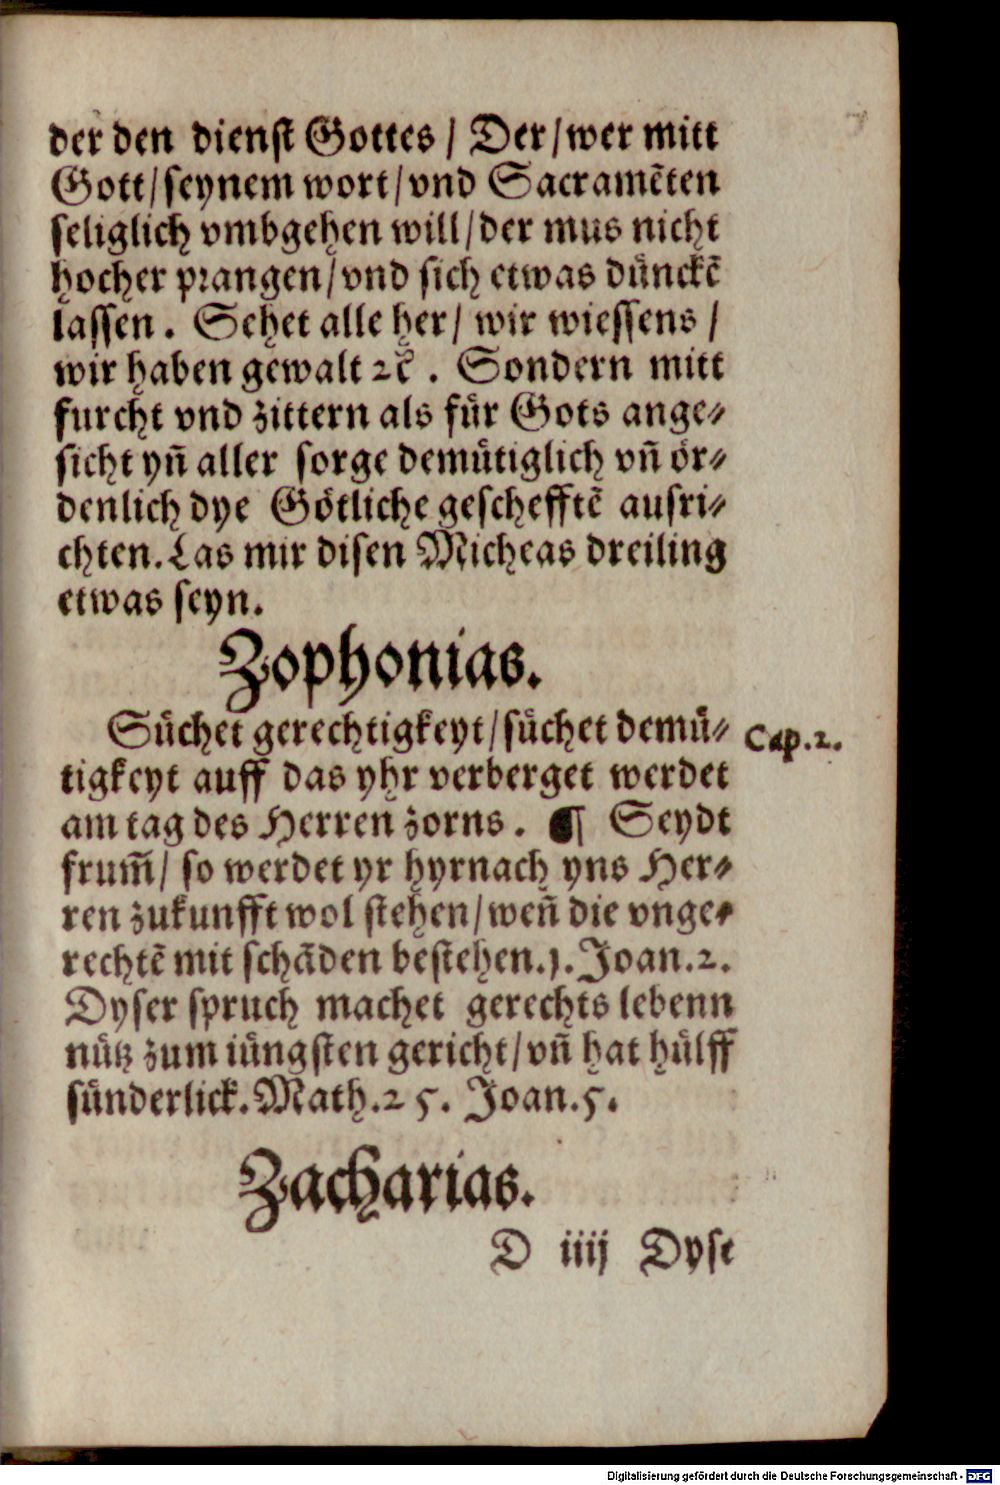 der den dienst Gottes / Der/wer mitt
Gott/seynem wort/vnd Sacramẽten
seliglich vmbgehen will/der mus nicht
hocher prangen/vnd sich etwas dünckẽ
lassen. Sehet alle her/ wir wiessens /
wir haben gewalt ꝛc̃. Sondern mitt
furcht vnd zittern als für Gots ange⸗
sicht yñ aller sorge demütiglich vñ ör⸗
denlich dye Götliche gescheфftẽ ausri⸗
chten. Las mir disen Micheas dreiling
etwas seyn.
Zophonias.
Süchet gerechtigkeyt/süchet demü⸗
Cap.2.
tigkeyt auff das yhr verberget werdet
am tag des Herren zorns. ¶ Seydt
frum̃/ so werdet yr hyrnach yns Her⸗
ren zukunfft wol stehen/weñ die vnge⸗
rechtẽ mit schãden bestehen.1.Joan.2.
Dyser spruch machet gerechts lebenn
nütz zum iüngsten gericht/vñ hat hülff
sünderlick. Math.25. Joan.5.
Zacharias.
D iiij Dyse
Digitalisierung gefördert durch die Deutsche Forschungsgemeinschaft - DFG